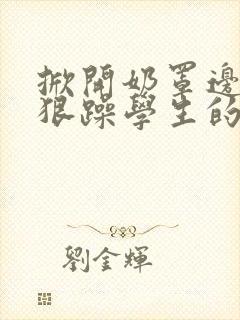 掀開奶罩邊
狠躁學生的
劉金輝